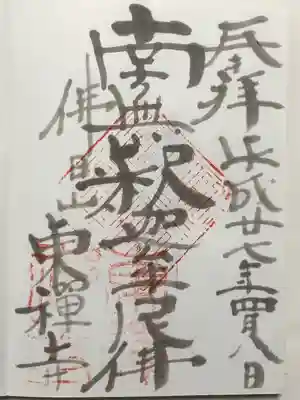 拝 平成廿七年四月八日
南無釈迦牟尼佛
佛日山
東禅寺